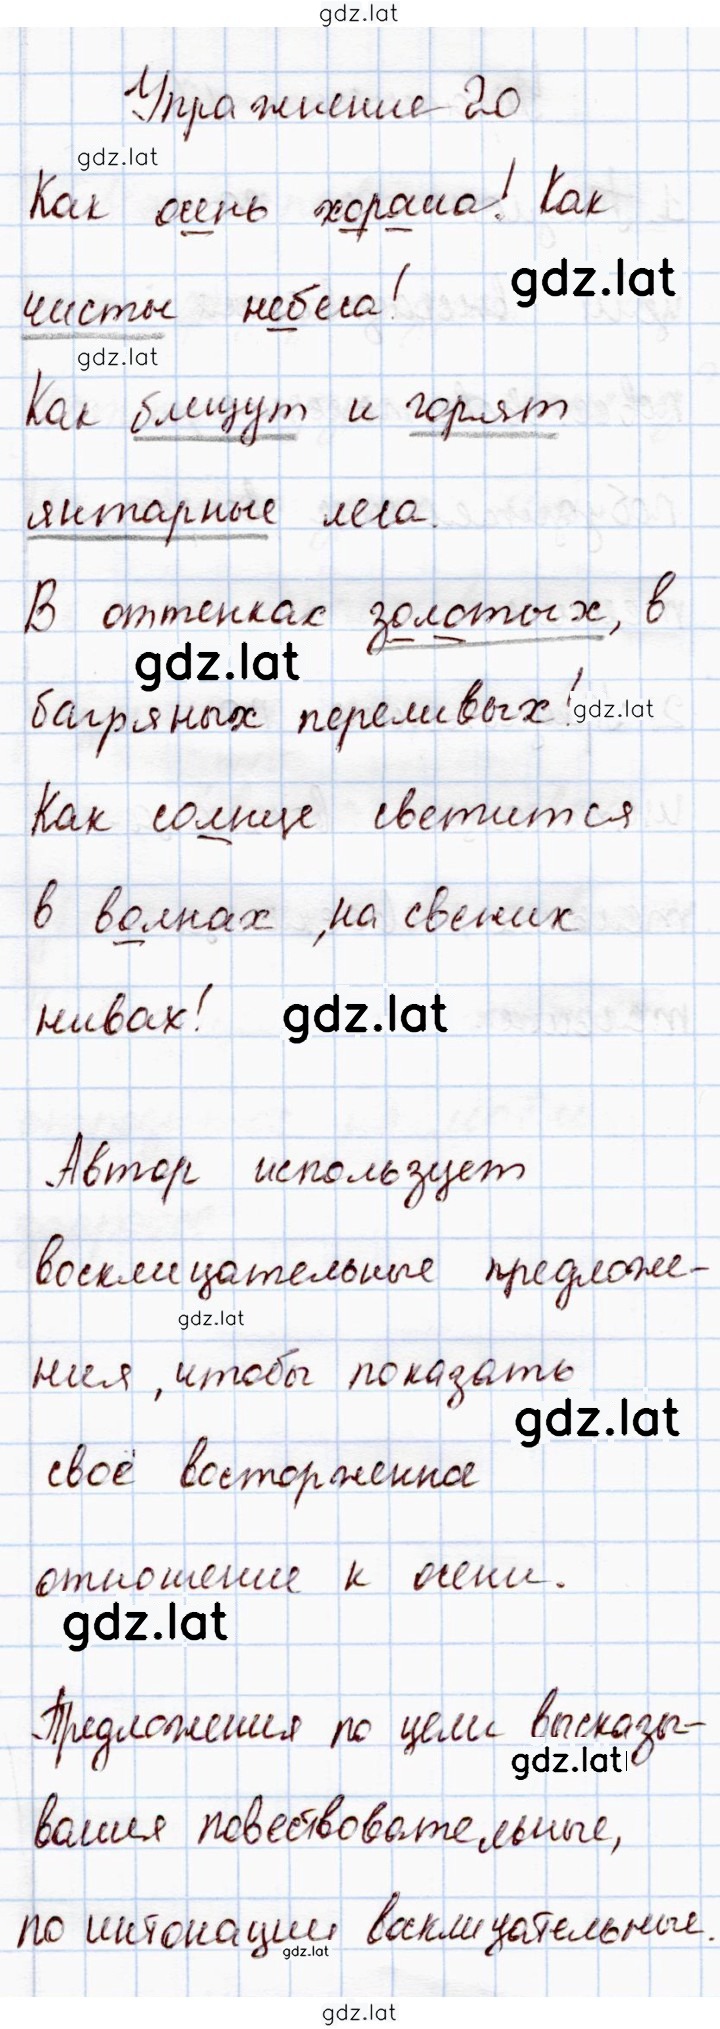 gdz.lat
Упражнение 20
gdz.lat
Как осень хороша! Как
gdz.lat
чисты небеса!
gdz.lat
Как блещут и горят
янтарные леса.
В оттенках золотых, в
gdz.lat
багряных переливых!
gdz.lat
Как солнце светится
в волнах, на свежих
нивах!
gdz.lat
Автор использует
восклицательные предложе-
gdz.lat
ния, чтобы показать
gdz.lat
своё восторженное
отношение к осени.
gdz.lat
Предложения по цели высказы-
gdz.lat
вания повествовательные,
по интонации восклицательные.
gdz.lat
gdz.lat